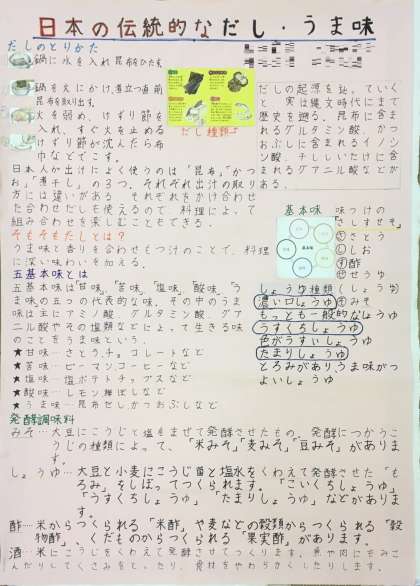 日本の伝統的なだし・うま味
だしのとりかた
鍋に水を入れ昆布をひたす
鍋をえにかけ煮立つ直前
昆布を取り出す。
火を弱め、けずり節を
入れ、すぐ火を止める
けずり節が沈んだら布
巾などでこす。
だし種類
日本人が出汁によく使うのは「昆布」「かつ
お」「煮干し」の3つ。それぞれ出汁の取り
方には違いがある それぞれをかけ合わせ
た合わせだしも使えるので、料理によって
組み合わせを楽しむこともできる。
そもそもだしとは？
うま味と香りを合わせもつ汁のことで、料理
に深い味わいを加える。
五基本味とは
五基本味は「甘味、苦味、塩味、酸味、う
ま味の五つの代表的な味。その中のうま
味は主にアミノ酸、グルタミン酸、グア
ニル酸やその塩類などによって生きる味
のことをうま味という。
★甘味…さとう、チョコレートなど
★苦味…ピーマン、コーヒーなど
★塩味…塩ポテトチップスなど
★酸味…レモン梅ぼしなど
★うま味…昆布せしかつおぶしなど
だしの起源を辿っていく
と実は縄文時代にまで
歴史を遡る。昆布に含ま
れるグルタミン酸、かつ
おぶしに含まれるイノシ
ン酸、干ししいたけに含
まれるグアニル酸などが
ある。
基本味
味つけの
「さしすせそ」
さとう
しお
す酢
せせうゆ
そみそ
しょうゆ種類(しょうゆ)
濃い口しょうゆ
もっとも一般的なしょうゆ
うすくちしょうゆ
色がうすいしょうゆ
たまりしょうゆ
とろみがありうま味がつ
よいしょうゆ
発酵調味料
みそ…大豆にこうじと塩をまぜて発酵させたもの。発酵につかうこ
うじの種類によって、「米みそ」「麦みそ」「豆みそ」がありま
す。
しょうゆ…大豆と小麦にこうじ菌と塩水をくわえて発酵させた「も
ろみ」をしぼってつくられます。「こいくちしょうゆ」
「うすくちしょうゆ」「たまりしょうゆ」などがありま
す。
酢…米からつくられる「米酢」や麦などの穀類からつくられる「穀
物酢」、くだものからつくられる「果実酢」があります。
酒…米にこうじをくわえて発酵させてつくります。魚や肉にもみこ
んだりしてくさみをとったり、食材をやわらかくしたりします。